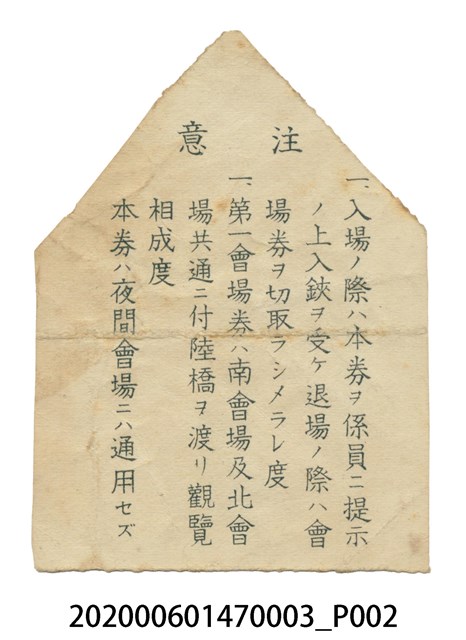 注意
一、入場ノ際ハ本券ヲ係員ニ提示
ノ上入鋏ヲ受ケ退場ノ際ハ會
場券ヲ切取ラシメラレ度
一、第一會場券ハ南會場及北會
場共通ニ付陸橋ヲ渡リ觀覽
相成度
本券ハ夜間會場ニハ通用セズ
202000601470003_P002